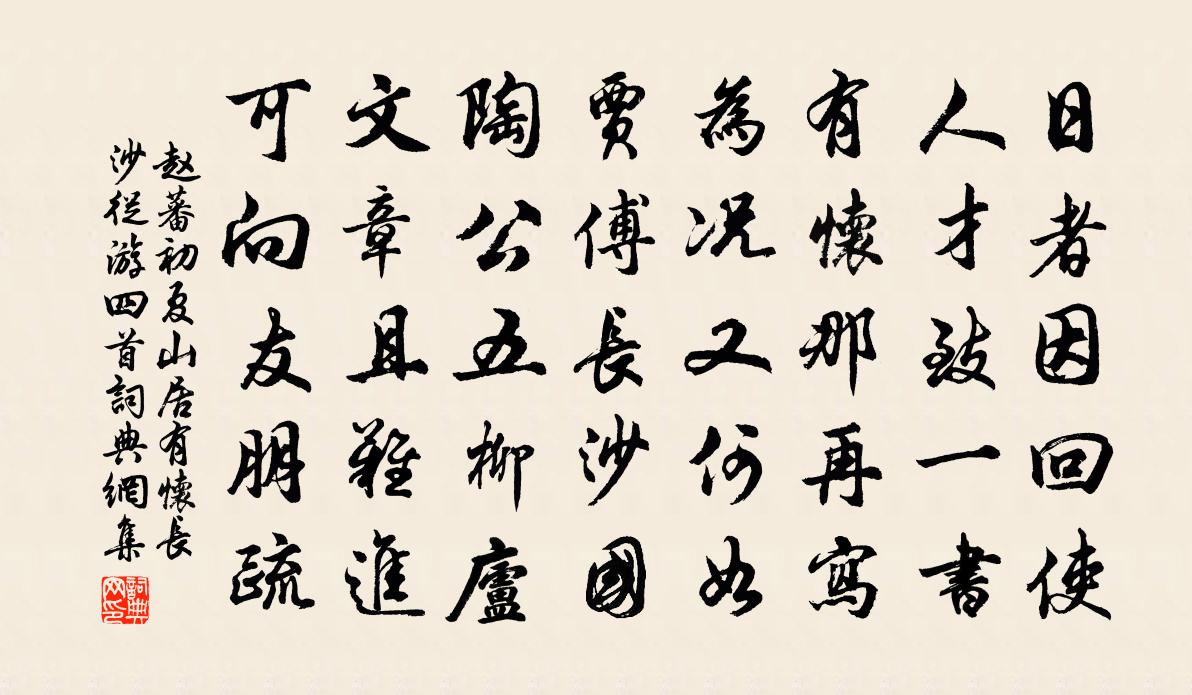 日者因回使
人才致一書
有懷那再寫
為况又何如
賈傅長沙國
陶公五柳廬
文章且難進
可向友朋疏
赵蕃初夏山居有懷長
沙從游四首詞典網集
詞典網印